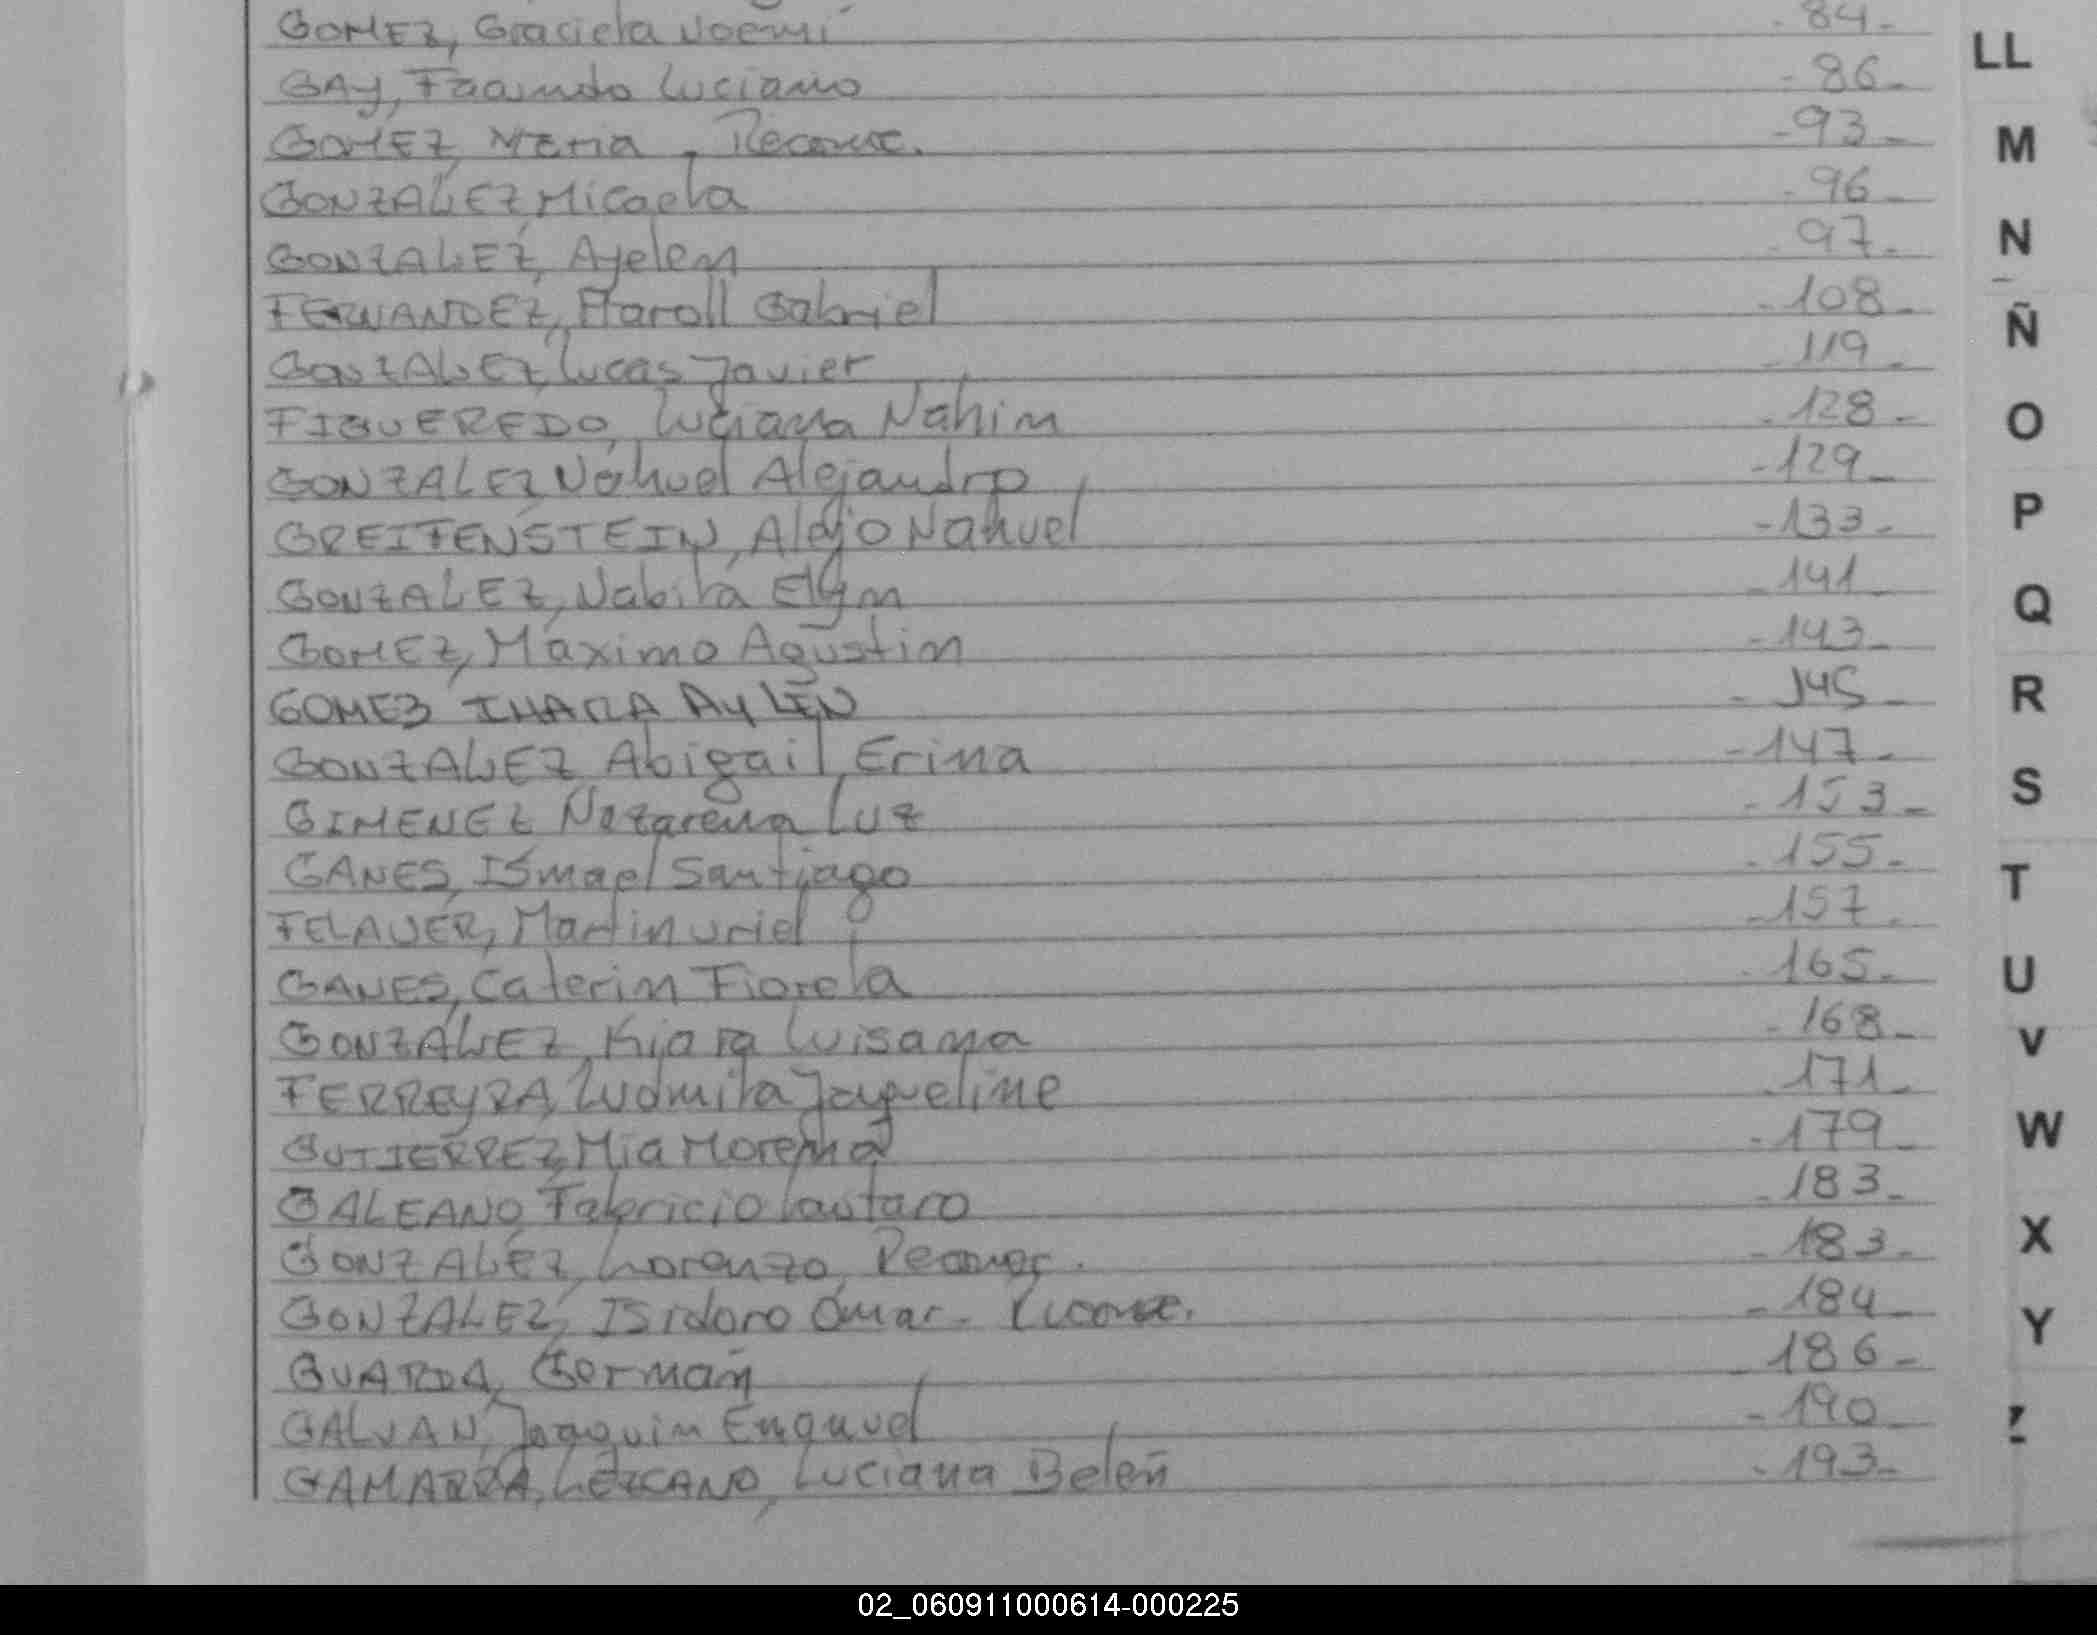 GOMEZ, Graciela Noemí -84-
GAY, Facundo Luciano -86-
GOMEZ, María - Reconoc. -93-
GONZALEZ, Micaela -96-
GONZALEZ, Ayelen -97-
FERNANDEZ, Haroll Gabriel -108-
GONZALEZ, Lucas Javier -119-
FIGUEREDO, Luciana Nahin -128-
GONZALEZ Nahuel Alejandro -129-
GREIFENSTEIN, Alejo Nahuel -133-
GONZALEZ, Nabila -141-
GOMEZ, Máximo Agustin -143-
GOMEZ IHARA AYLÉN -145-
GONZALEZ Abigail Erina -147-
GIMENEZ Nazarena Luz -153-
GANES, Ismael Santiago -155-
FELAUER, Martin uriel -157-
GANES, Caterin Fiorela -165-
GONZALEZ, Kiara Luisana -168-
FERREYRA, Ludmila Jaqueline -171-
GUTIERREZ, Mía Morena -179-
GALEANO, Fabricio Lautaro -183-
GONZALEZ, Lorenzo, Reconoc. -183-
GONZALEZ, Isidoro Omar - Reconoc. -184-
GUARDA, German -186-
GALVAN, Joaquin -190-
GAMARRA, LEZCANO, Luciana Belén -193-
LL
M
N
Ñ
O
P
Q
R
S
T
U
V
W
X
Y
Z
02_060911000614-000225